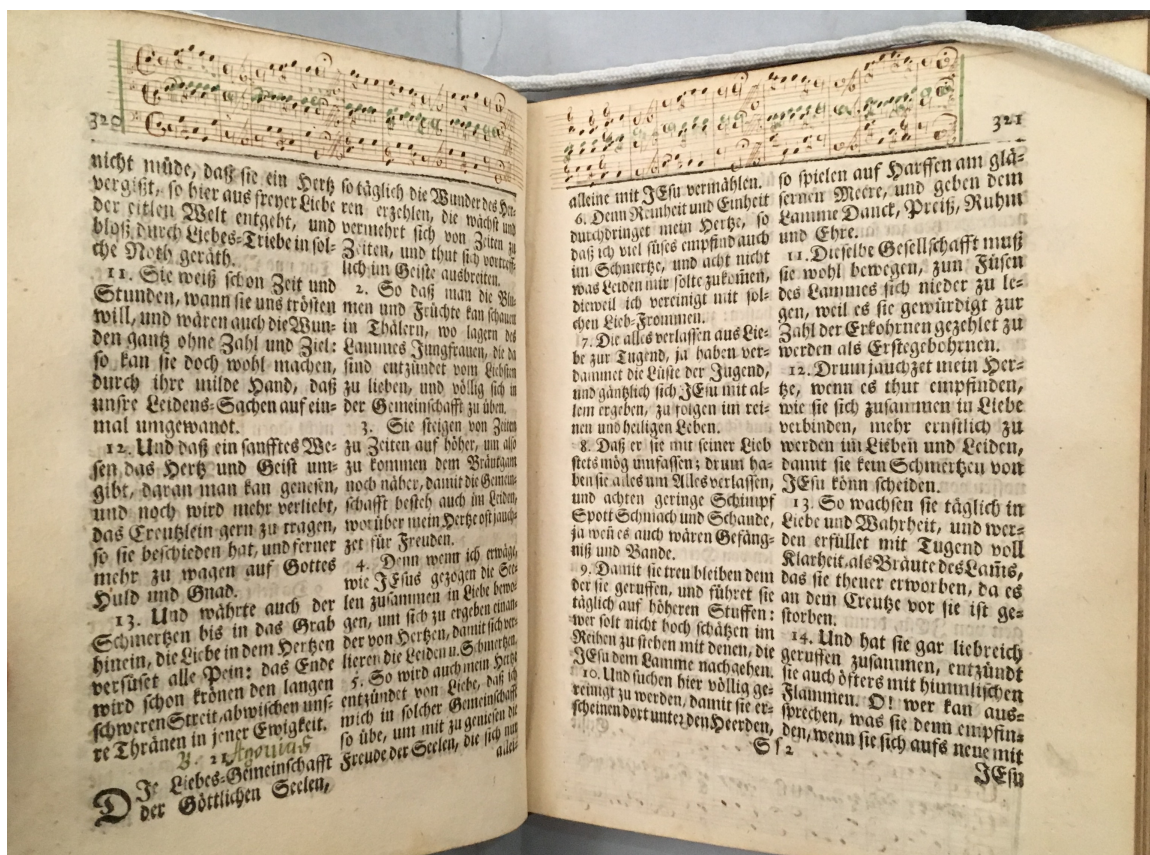 320
nicht müde, daß sie ein Hertz
vergißt, so hier aus freyer Liebe
der eitlen Welt entgeht, und
bloß durch Liebes-Triebe in sol-
che Noth geräth.
11. Sie weiß schon Zeit und
Stunden, wann sie uns trösten
will, und wären auch die Wun-
den gantz ohne Zahl und Ziel:
so kan sie doch wohl machen,
durch ihre milde Hand, daß
unsre Leidens-Sachen auf ein-
mal umgewandt.
12. Und daß ein sanfftes We-
sen das Hertz und Geist um-
gibt, daran man kan genesen,
und noch wird mehr verliebt,
das Creutzlein gern zu tragen,
so sie beschieden hat, und ferner
mehr zu wagen auf Gottes
Huld und Gnad.
13. Und währte auch der
Schmertzen bis in das Grab
hinein, die Liebe in dem Hertzen
versüset alle Pein: das Ende
wird schon krönen den langen
schweren Streit, abwischen uns-
re Thränen in jener Ewigkeit.
DJe Liebes-Gemeinschafft
der Göttlichen Seelen,
so täglich die Wunder des Her-
ren erzehlen, die wächst und
vermehrt sich von Zeiten zu
Zeiten, und thut sich vortreff-
lich im Geiste ausbreiten.
2. So daß man die Blu-
men und Früchte kan schauen
in Thälern, wo lagern des
Lammes Jungfrauen, die da
sind entzündet vom Liebsten
zu lieben, und völlig sich in
der Gemeinschafft zu üben.
3. Sie steigen von Zeiten
zu Zeiten auf höher, um also
zu kommen dem Bräutgam
noch näher, damit die Gemein-
schafft besteh auch im Leiden,
worüber mein Hertze oft jauch-
zet für Freuden.
4. Denn wenn ich erwäge,
wie JEsus gezogen die See-
len zusammen in Liebe bewo-
gen, um sich zu ergeben einan-
der von Hertzen, damit sich ver-
lieren die Leiden u. Schmertzen.
5. So wird auch mein Hertze
entzündet von Liebe, daß ich
mich in solcher Gemeinschafft
so übe, um mit zu geniesen die
Freude der Seelen, die sich nur
allein
321
alleine mit JEsu vermählen.
6. Denn Reinheit und Einheit
durchdringet mein Hertze, so
daß ich viel süses empfind auch
im Schmertze, und acht nicht
was Leiden mir solte zukom̃en,
dieweil ich vereinigt mit sol-
chen Lieb-Frommen.
7. Die alles verlassen aus Lie-
be zur Tugend, ja haben ver-
dammet die Lüste der Jugend,
und gäntzlich sich JEsu mit al-
lem ergeben, zu folgen im rei-
nen und heiligen Leben.
8. Daß er sie mit seiner Lieb
stets mög umfassen; drum ha-
ben sie alles um Alles verlassen,
und achten geringe Schimpf
Spott Schmach und Schande,
ja weñ es auch wären Gefäng-
niß und Bande.
9. Damit sie treu bleiben dem
der sie geruffen, und führet sie
täglich auf höheren Stuffen:
wer solt nicht hoch schätzen im
Reihen zu stehen mit denen, die
JEsu dem Lamme nachgehen.
10. Und suchen hier völlig ge-
reinigt zu werden, damit sie er-
scheinen dort unter den Heerden,
so spielen auf Harffen am glä-
sernen Meere, und geben dem
Lamme Danck, Preiß, Ruhm
und Ehre.
11. Dieselbe Gesellschafft muß
sie wohl bewegen, zun Füsen
des Lammes sich nieder zu le-
gen, weil es sie gewürdigt zur
Zahl der Erkohrnen gezehlet zu
werden als Erstegebohrnen.
12. Drum jauchzet mein Her-
tze, wenn es thut empfinden,
wie sie sich zusammen in Liebe
verbinden, mehr ernstlich zu
werden im Lieben und Leiden,
damit sie kein Schmertzen von
JEsu könn scheiden.
13. So wachsen sie täglich in
Liebe und Wahrheit, und wer-
den erfüllet mit Tugend voll
Klarheit, als Bräute des Lam̃s,
das sie theuer erworben, da es
an dem Creutze vor sie ist ge-
storben.
14. Und hat sie gar liebreich
geruffen zusammen, entzündt
sie auch öfters mit himmlischen
Flammen. O! wer kan aus-
sprechen, was sie denn empfin-
den, wenn sie sich aufs neue mit
Ss 2
JEsu